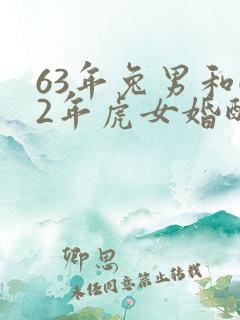 63年兔男和
2年虎女婚
卿思
未经同意禁止转载